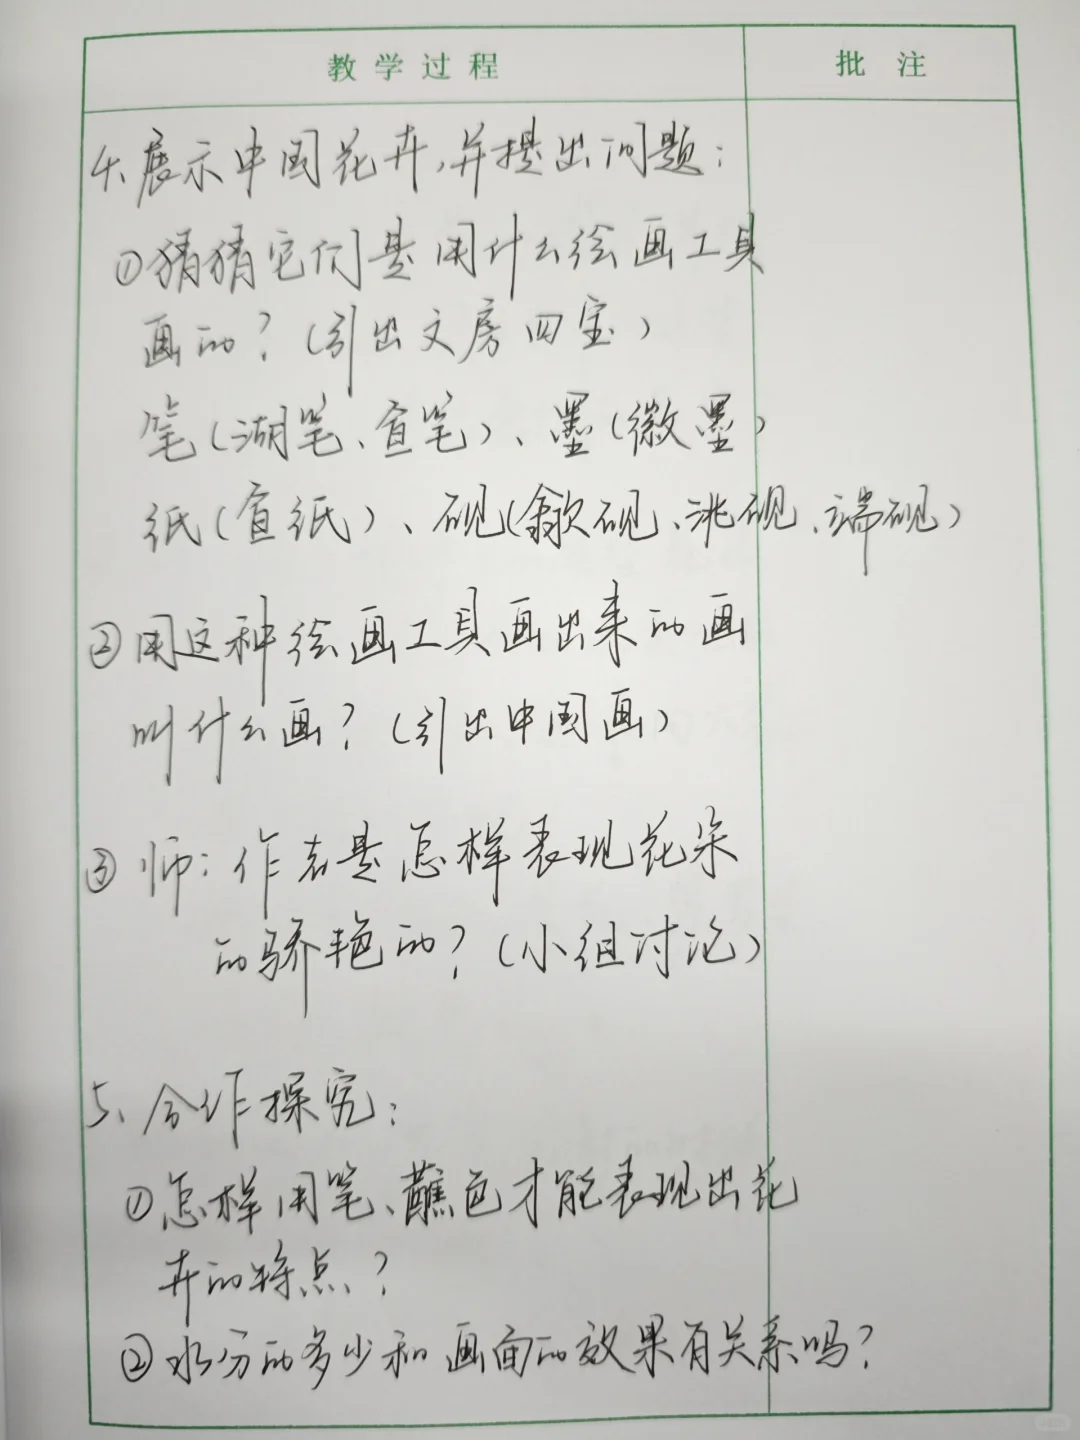 教学过程 批注
4、展示中国花卉,并提出问题:
①猜猜它们是用什么绘画工具
画的?(引出文房四宝)
笔(湖笔、宣笔)、墨(徽墨)
纸(宣纸)、砚(歙砚、洮砚、端砚)
②用这种绘画工具画出来的画
叫什么画?(引出中国画)
③师:作者是怎样表现花朵
的骄艳的?(小组讨论)
5、合作探究:
①怎样用笔、蘸色才能表现出花
卉的特点?
②水分的多少和画面的效果有关系吗?